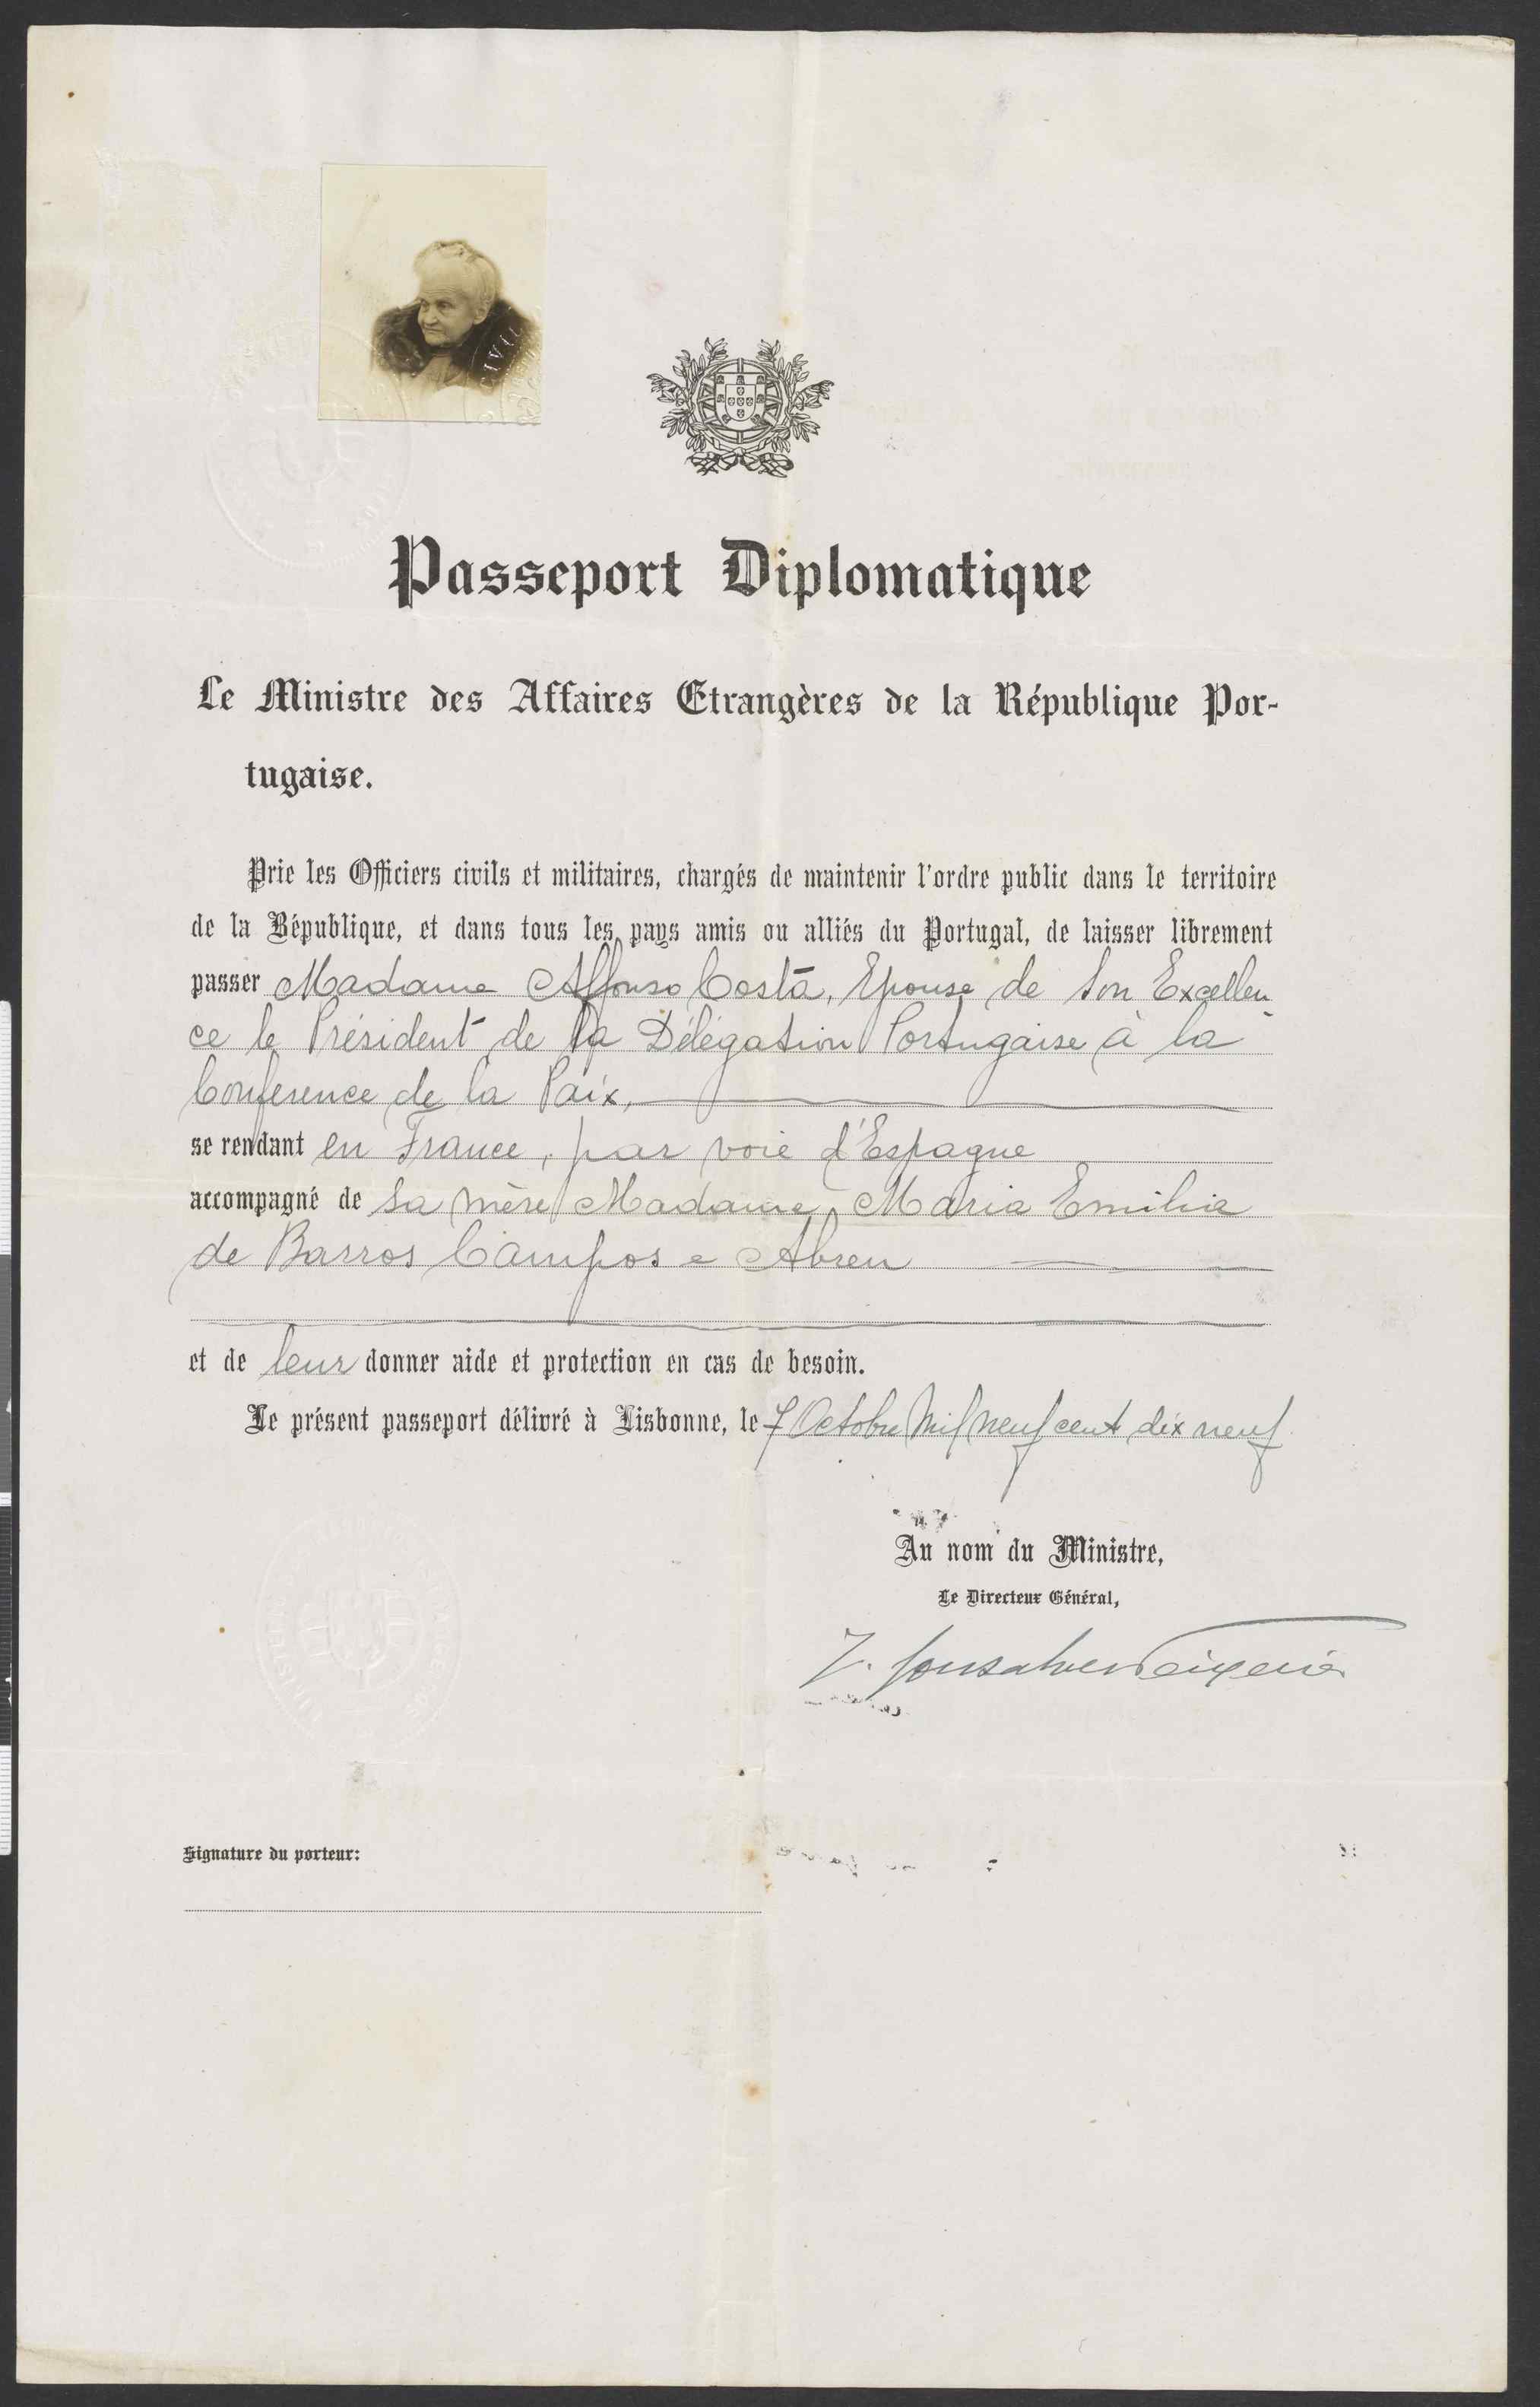 Passeport Diplomatique
Le Ministre des Affaires Etrangères de la République Por-
tugaise.
Prie les Officiers civils et militaires, chargés de maintenir l'ordre public dans le territoire
de la République, et dans tous les pays amis ou alliés du Portugal, de laisser librement
passer Madame Affonso Costa, Epouse de Son Excellen-
ce le Président de la Délégation Portugaise à la
Conference de la Paix,
se rendant en France, par voie d'Espagne
accompagné de sa mère Madame Maria Emilia
de Barros Campos e Abreu
et de leur donner aide et protection en cas de besoin.
Le présent passeport délivré à Lisbonne, le 7 Octobre Mil neuf cent dix neuf
Au nom du Ministre,
Le Directeur Général,
Teixeira
Signature du porteur: